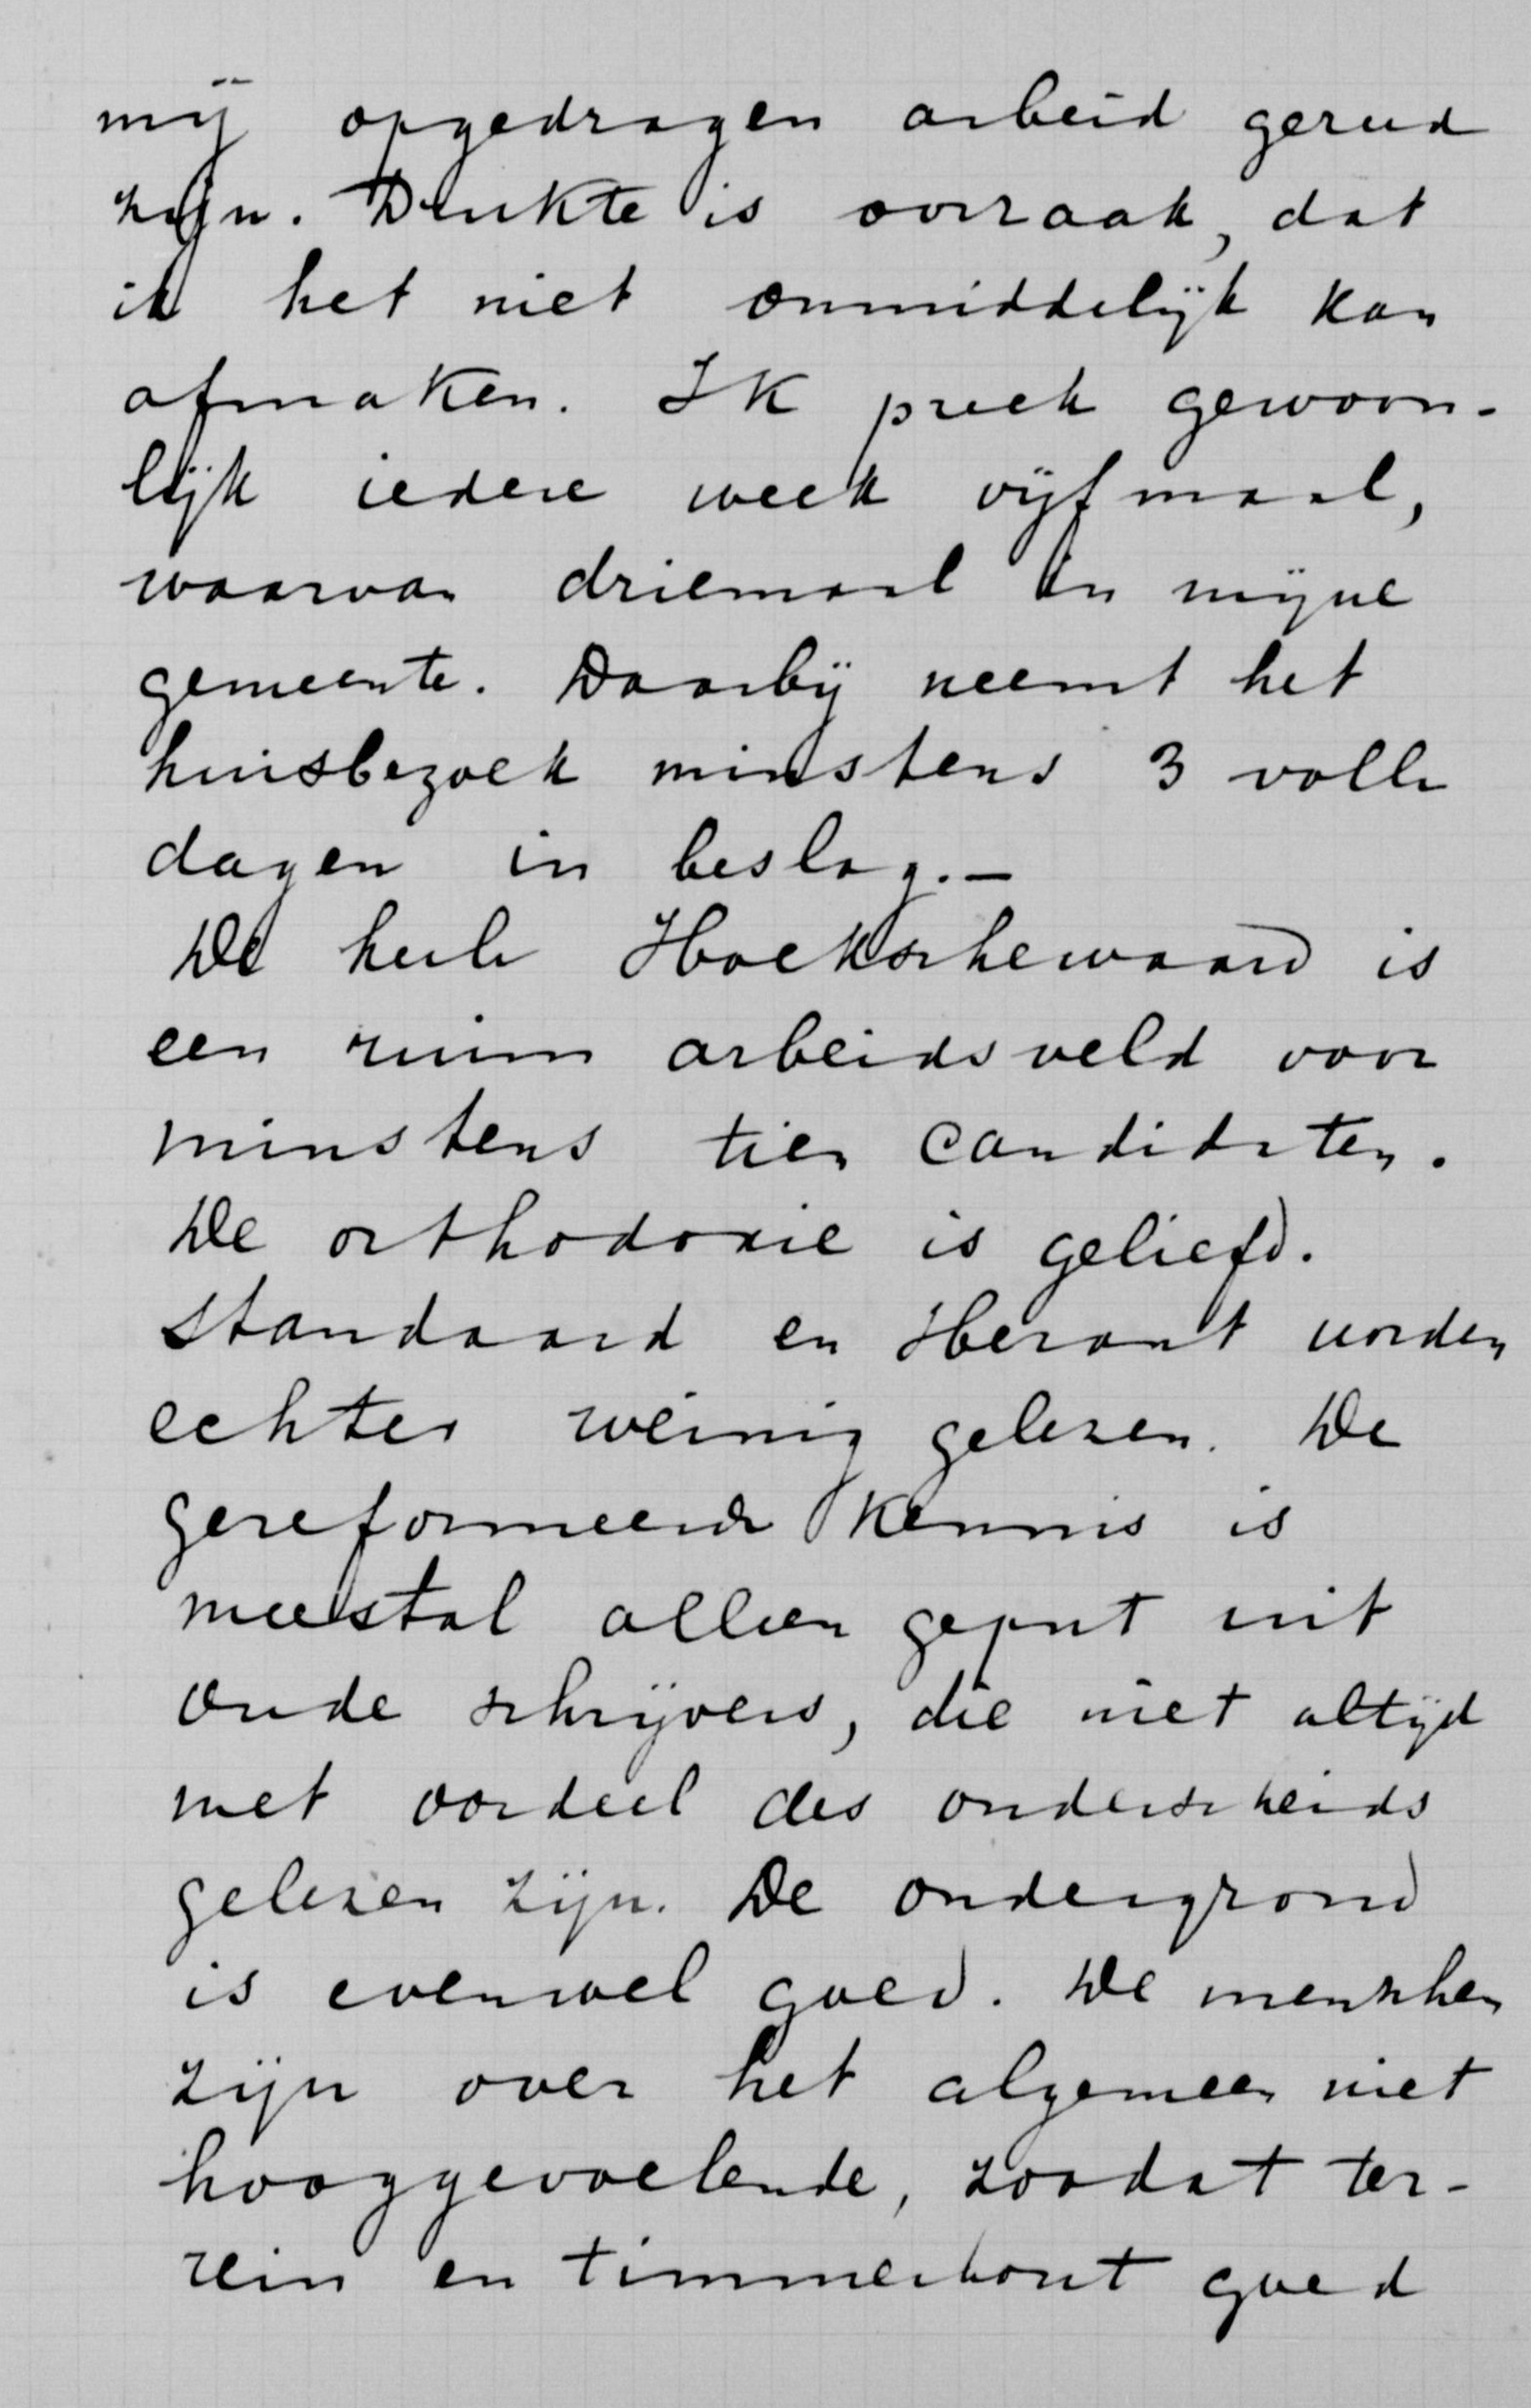 mij opgedragen arbeid gereed
zijn. Drukte is oorzaak, dat
ik het niet onmiddelijk kan
afmaken. Ik preek gewoon-
lijk iedere week vijfmaal,
waarvan driemaal in mijne
gemeente. Daarbij neemt het
huisbezoek minstens 3 volle
dagen in beslag. —
De heele Hoekschewaard is
een ruim arbeidsveld voor
minstens tien candidaten.
De orthodoxie is geliefd.
Standaard en Heraut worden
echter weinig gelezen. De
gereformeerde kennis is
meestal alleen geput uit
oude schrijvers, die niet altijd
met oordeel des onderscheids
gelezen zijn. De ondergrond
is evenwel goed. De menschen
zijn over het algemeen niet
hooggevoelende, zoodat ter-
rein en timmerhout goed